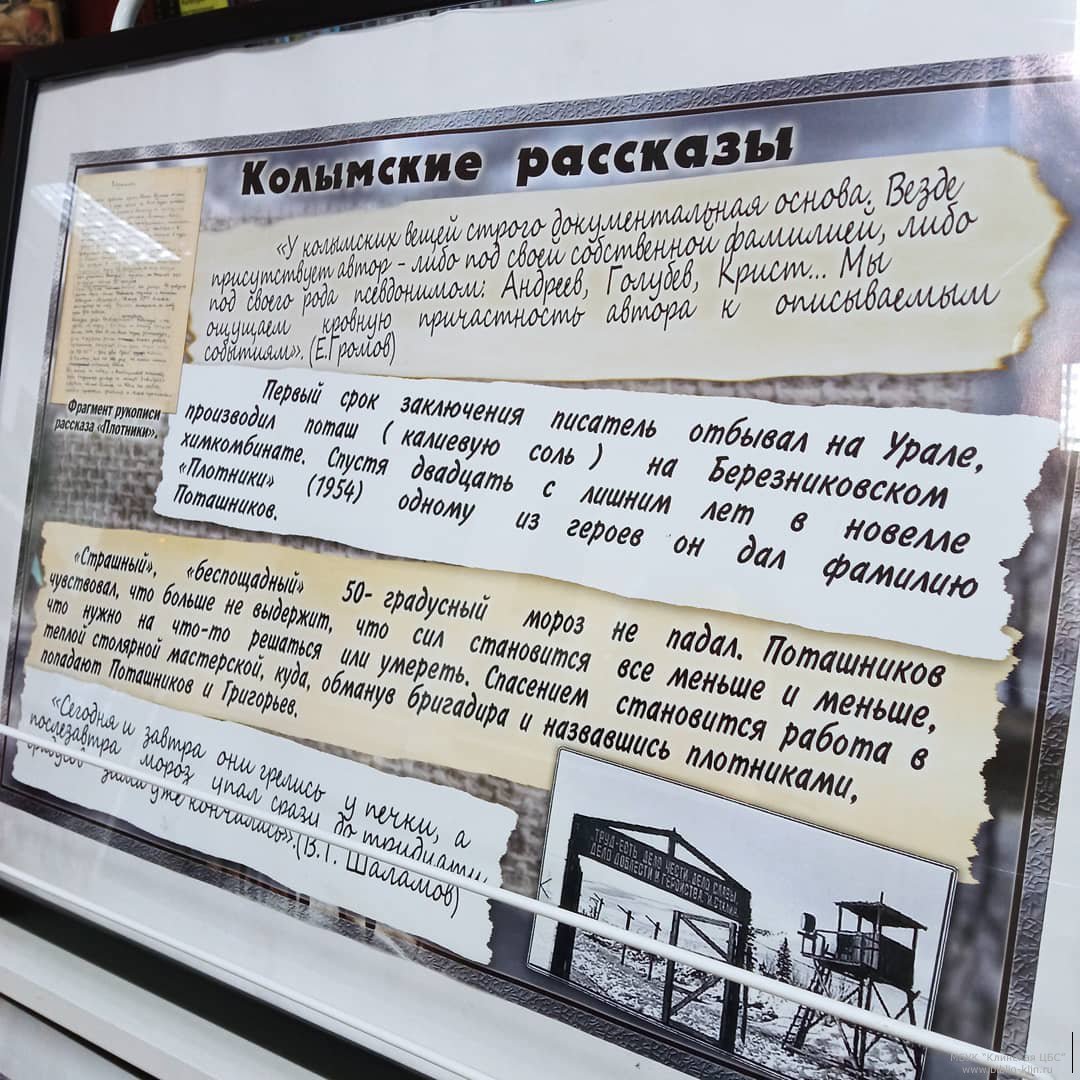 Колымские рассказы
«У колымских вещей строго документальная основа. Везде
присутствует автор - либо под своей собственной фамилией, либо
под своего рода псевдонимом: Андреев, Голубев, Крист... Мы
ощущаем кровную причастность автора к описываемым
событиям». (Е.Громов)
Фрагмент рукописи
рассказа «Плотники».
Первый срок заключения писатель отбывал на Урале,
производил поташ ( калиевую соль ) на Березниковском
химкомбинате. Спустя двадцать с лишним лет в новелле
«Плотники» (1954) одному из героев он дал фамилию
Поташников.
«Страшный», «беспощадный» 50- градусный мороз не падал. Поташников
чувствовал, что больше не выдержит, что сил становится все меньше и меньше,
что нужно на что-то решаться или умереть. Спасением становится работа в
теплой столярной мастерской, куда, обманув бригадира и назвавшись плотниками,
попадают Поташников и Григорьев.
«Сегодня и завтра они грелись у печки, а
послезавтра мороз упал сразу до тридцати
градусов зима уже кончалась».(В.Т. Шаламов)
ТРУД-ЕСТЬ ДЕЛО ЧЕСТИ, ДЕЛО СЛАВЫ,
ДЕЛО ДОБЛЕСТИ И ГЕРОЙСТВА. И.СТАЛИН
МБУК "Клинская ЦБС"
www.biblio-klin.ru